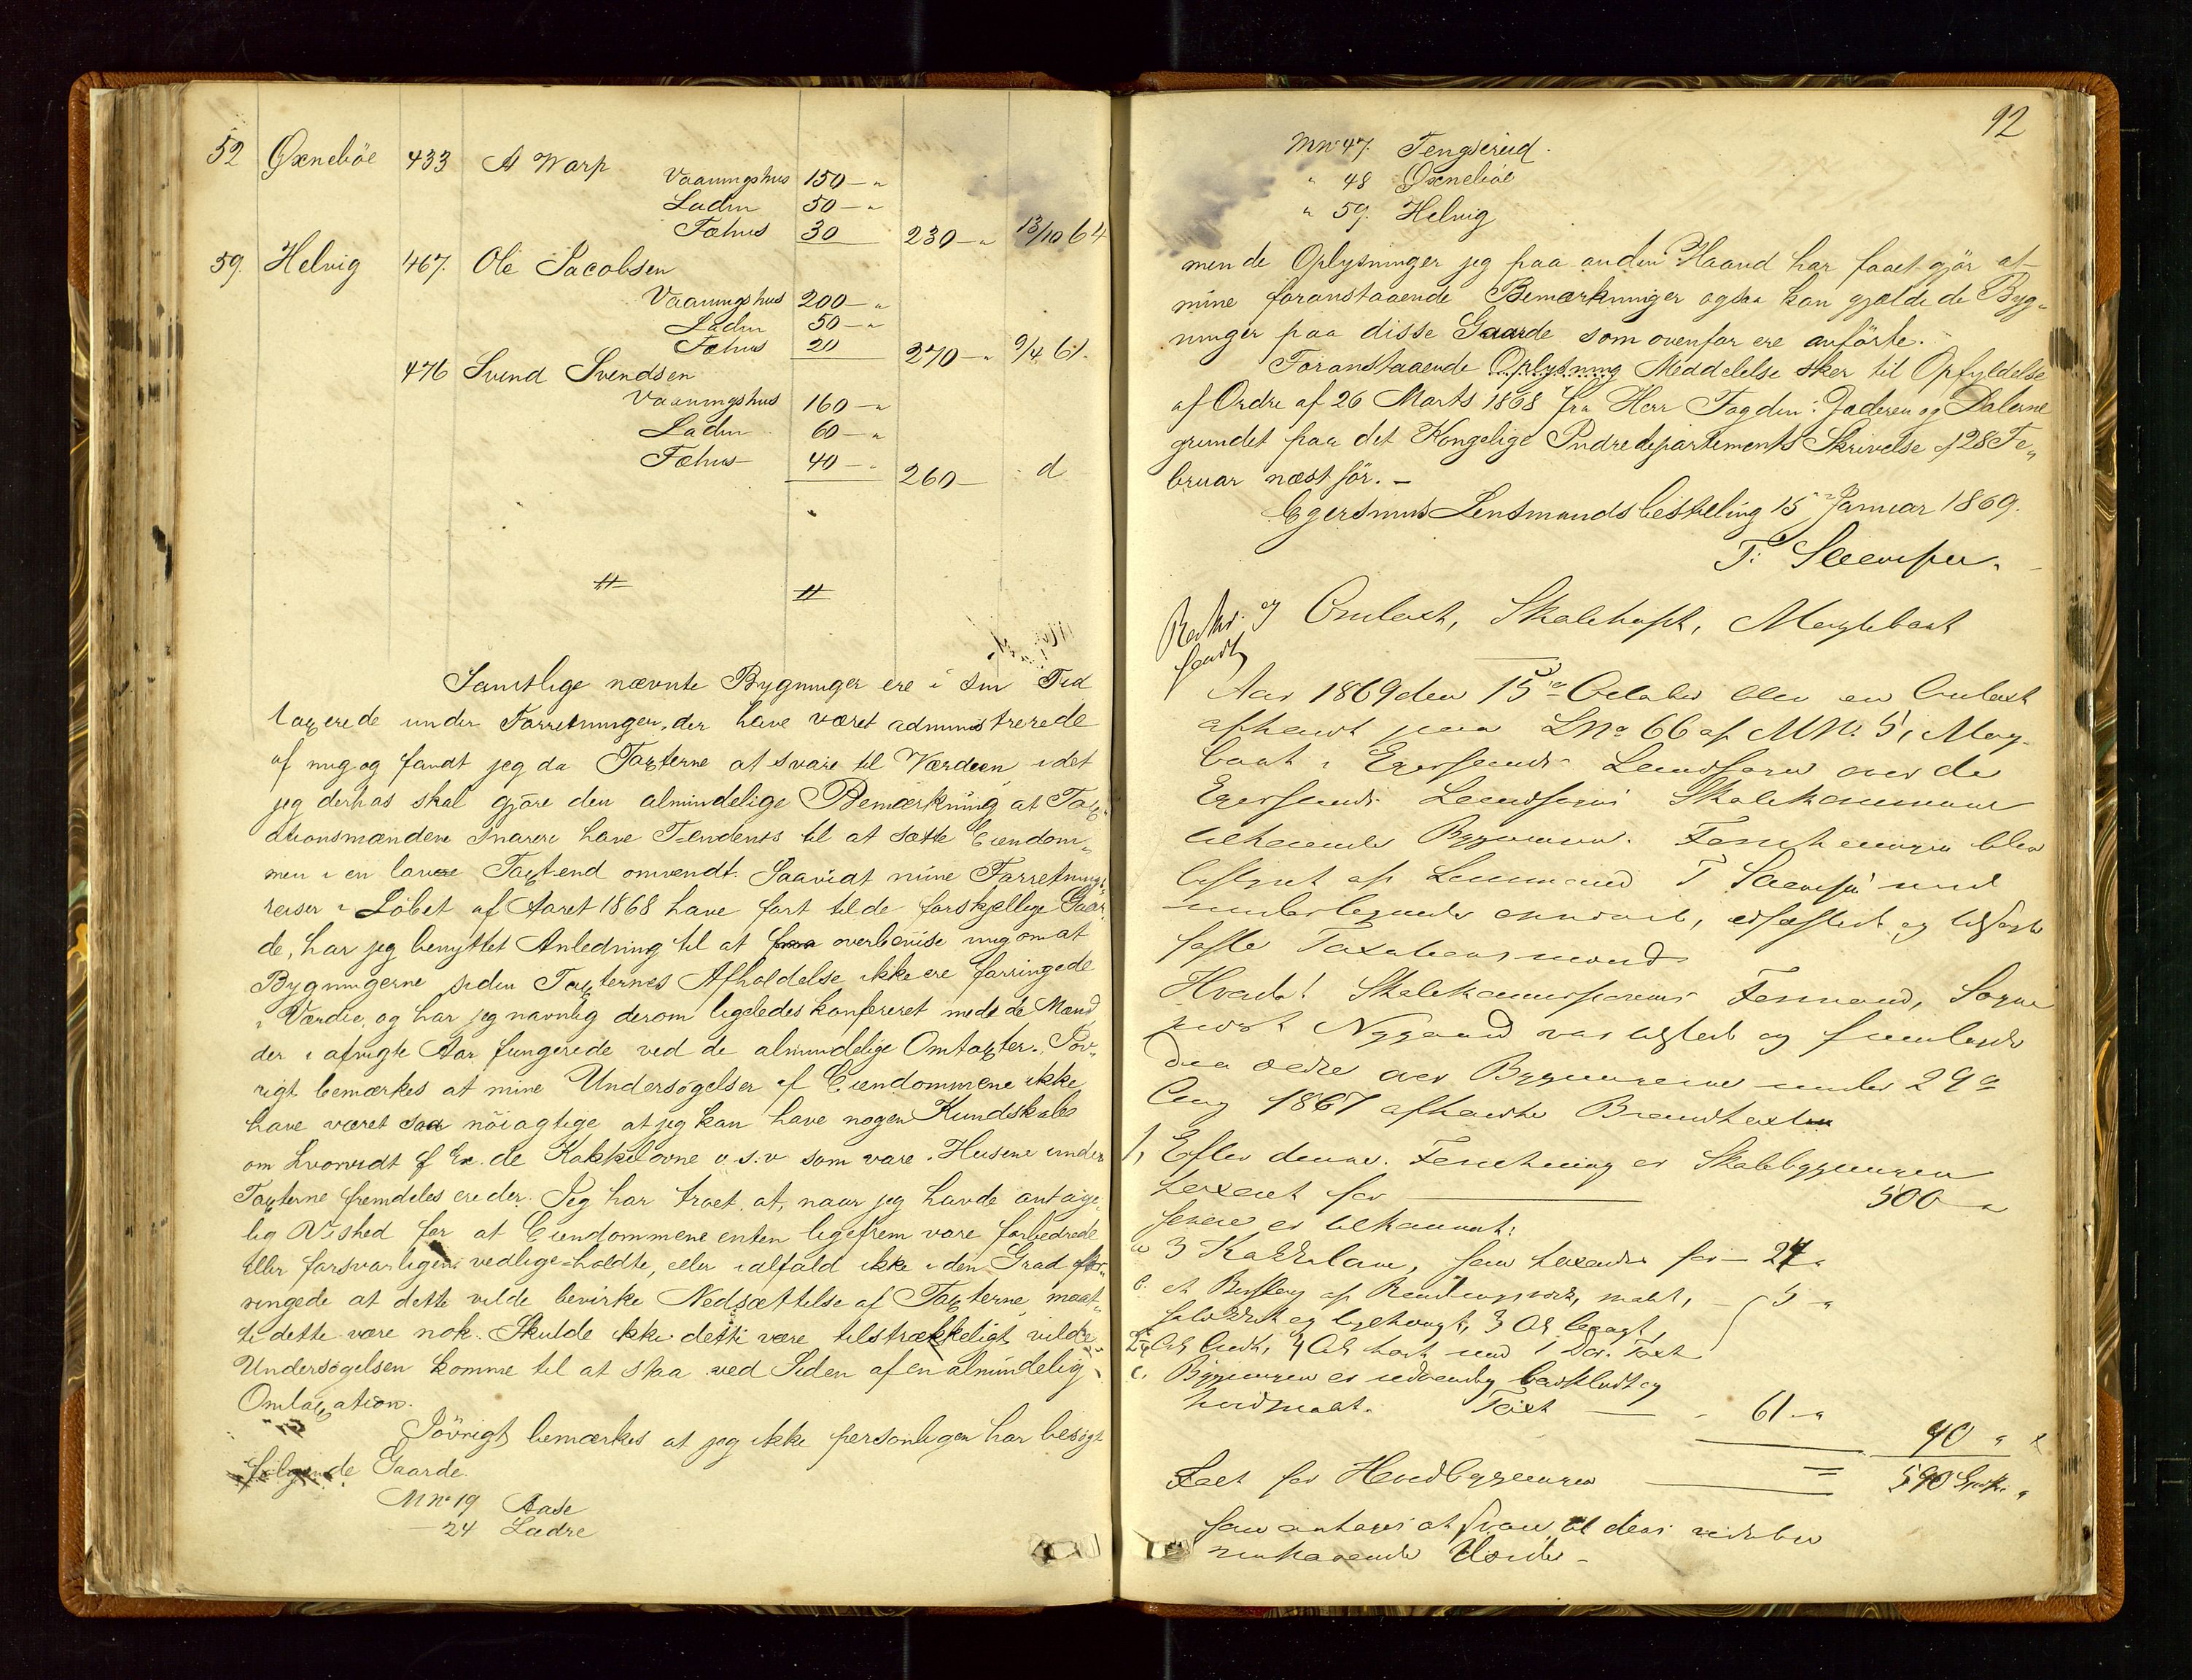 52 Øxneböe 433 A Warp Vaaningshus 150 – "
Laden 50 – "
Fæhus 30 230 – " 13/10 64
59. Helvig 467. Ole Jacobsen
Vaaningshus 200 – "
Laden 50 – "
Fæhus 20 270 – " 9/4 61.
476 Svend Svendsen
Vaaningshus 160 – "
Laden 60 – "
Fæhus 40 – " 260 – d
Samtlige nævnte Bygninger ere i sin Tid
taxerede under Forretninger, der have været administrerede
af mig og fandt jeg da Taxterne at svare til Værdien, idet
jeg derhos skal gjöre den almindelige Bemærkning at Tax-
ationsmændene snarere have Tendents til at sætte Eiendom-
men i en lavere Taxt end omvendt. Saavidt mine Forretnings-
reiser i Löbet af Aaret 1868 have fört til de forskjellige Gaar-
de, har jeg benyttet Anledning til at overbevise mig om at
Bygningerne siden Taxternes Afholdelse ikke ere forringede
i Værdie, og har jeg navnlig derom ligeledes konfereret med de Mænd
der i afvigte Aar fungerede ved de almindelige Omtaxter. Iöv-
rigt bemærkes at mine Undersögelser af Eiendommene ikke
have været saa nöiagtige at jeg kan have nogen Kundskab
om hvorvidt f Ex. de Kakkelovne o. s. v som vare i Husene under
Taxterne fremdeles ere der. Jeg har troet at, naar jeg havde antage-
lig Vished for at Eiendommene enten ligefrem vare forbedrede
eller forsvarligen vedlige-holdte, eller ialfald ikke i den Grad for-
ringede at dette vilde bevirke Nedsættelse af Taxterne, maat-
te dette være nok. Skulde ikke dette være tilstrækkeligt, vilde
Undersögelsen komme til at staa ved Siden af en almindelig
Omtaxation.
Iövrigt bemærkes at jeg ikke personligen har besögt
fölgende Gaarde.
M No 19 Aase
– 24 Ladre
92
M No 47. Tengsereid.
" 48 Øxneböe
" 59. Helvig
men de Oplysninger jeg paa anden Haand har faaet gjör at
mine foranstaaende Bemærkninger ogsaa kan gjælde de Byg-
ninger paa disse Gaarde som ovenfor ere anförte.
Foranstaaende Oplysning Meddelelse sker til Opfyldelse
af Ordre af 26 Marts 1868 fra Herr Fogden i Jæderen og Dalerne
grundet paa det Kongelige Indredepartements Skrivelse af 28 Fe-
bruar næst för. –
Egersunds Lensmandsbestilling 15 Januar 1869.
T:
og Omtaxt,
Aar 1869 den 15de October blev en Omtaxt
afholdt paa LNo 66 af MNo. 5,
i Egersunds Landsogn over de
Egersunds Landsogns Skolekommune
tilhörende Bygninger. Forretningen blev
bestyret af Lensmand T med
undertegnede opnævnte, edfæstede og
faste Taxationsmænd
Hvorda! Skolekommissionens Formand, Sogne
præst Nygaard var tilstede og fremlagde
den over Bygningerne under 29de
Aug 1867 afholdte Brandtaxt
1, Efter denne Forretning er Skolebygningen
taxeret for 500 "
senere er tilkommet:
a 3 Kakkelovne, som taxeres for – 24 "
b. et af malt, – 5 "
og 3 Al
Al bredt, 4 Al höit med 1 Dör. Taxt
c. Bygningen er udvendig bordklædt og
hvidmalt. Taxt – 61 – "
90 "
Taxt for Hovedbygningen = 590 Spdlr. "
som antages at svare til dens
Værdie –